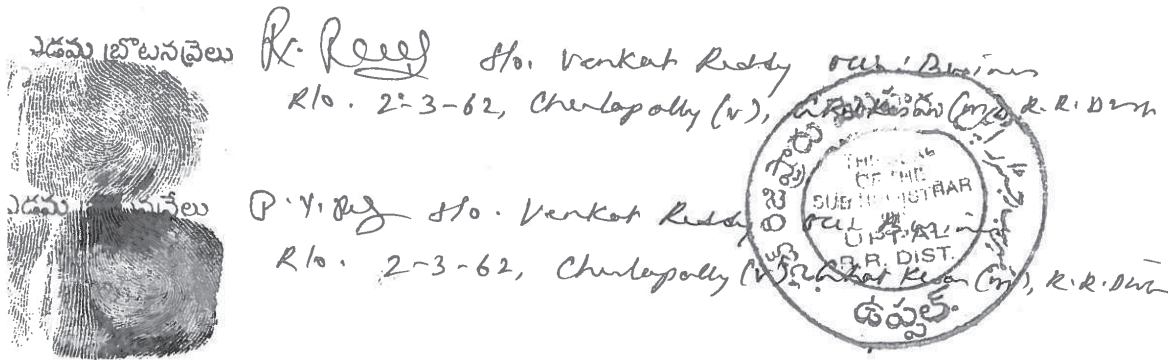 ఎడమ బ్రొటనవ్రేలు S/o. Venkat Reddy occ: Business
R/o. 2-3-62, Cherlapally (v), Ghatkesar (m), R.R. Dist
ఎడమ P. Y. S/o. Venkat Reddy occ Business
R/o. 2-3-62, Cherlapally (v), Ghat Kesar (m), R.R. Dist
THE SEAL
OF THE
SUB REGISTRAR
UPPAL
R.R. DIST.
ఉప్పల్